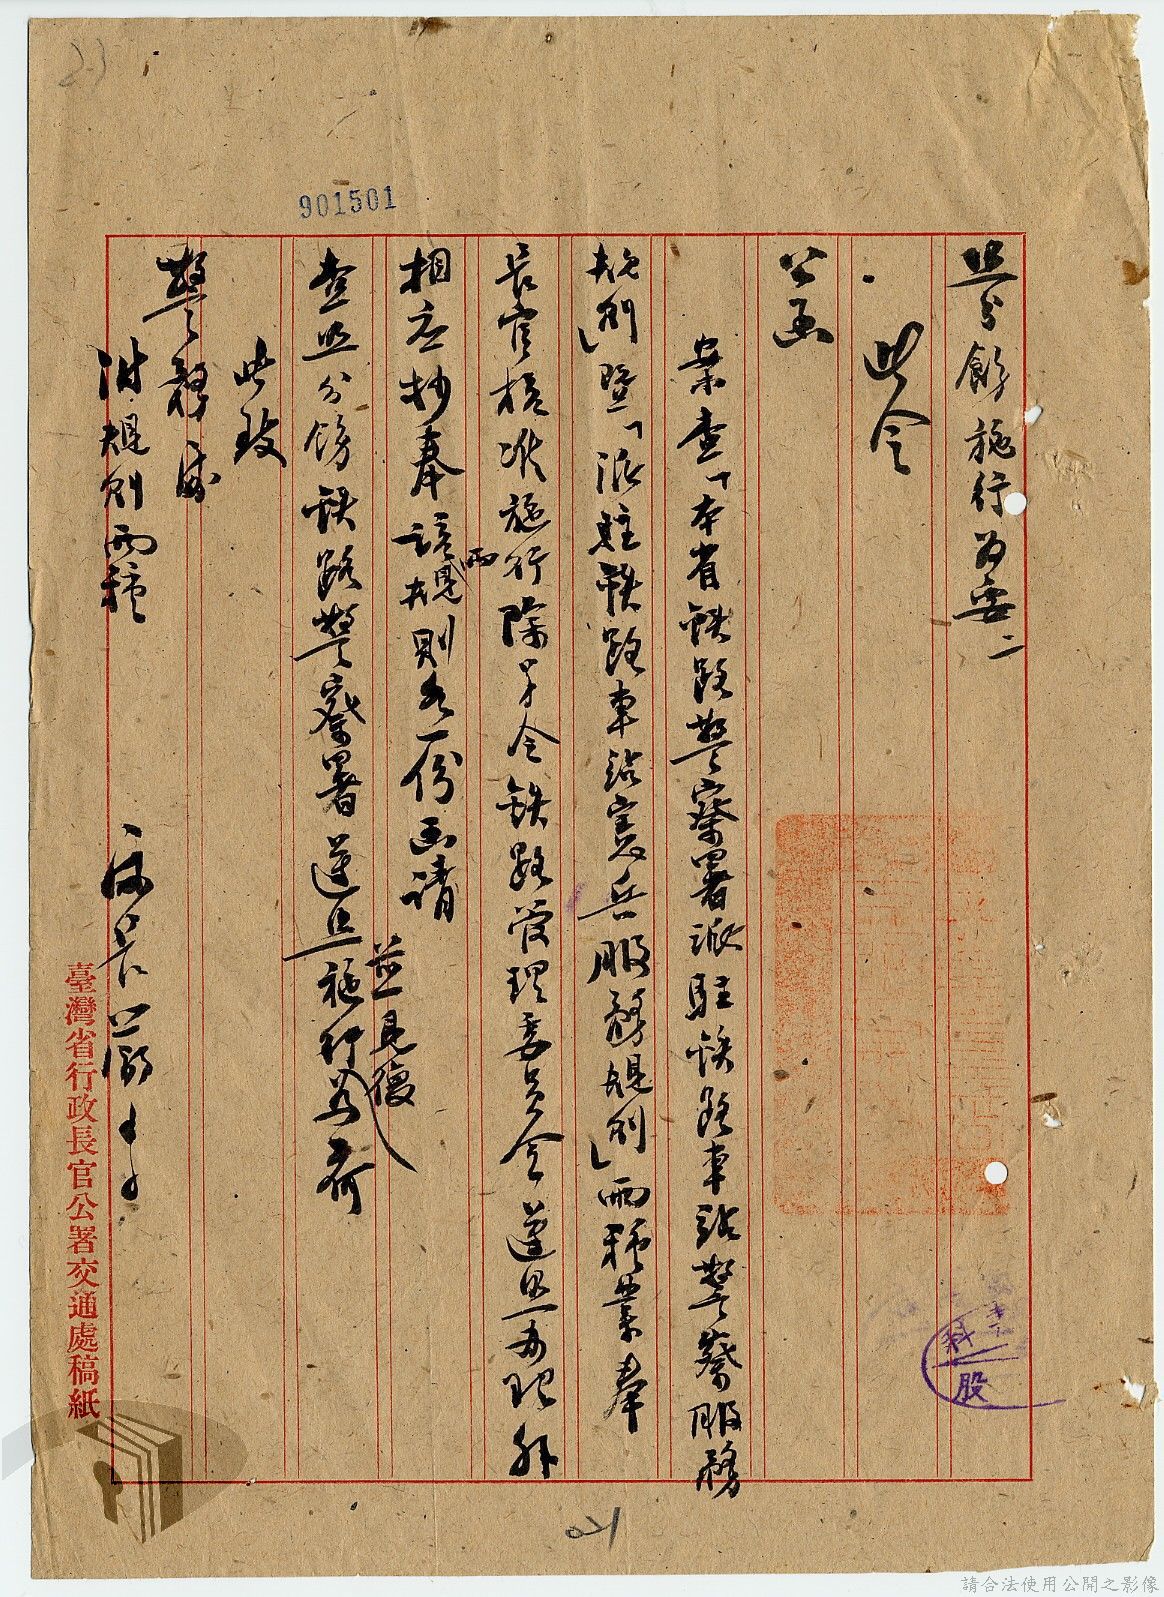 901501
照分飭施行為要
此令
公函
案查「本省鉄路警察署派駐鉄路車站警察服務
規則」暨「派駐鉄路車站憲兵服務規則」兩種業奉
長官核准施行除另令鉄路管理委員会遵照辦理外
相应抄奉該兩規則各一份函請
查照分飭鉄路警察署遵照施行並見復為荷
此致
警務處
附規則兩種
處長
臺灣省行政長官公署交通處稿紙
科
股
請合法使用公開之影像